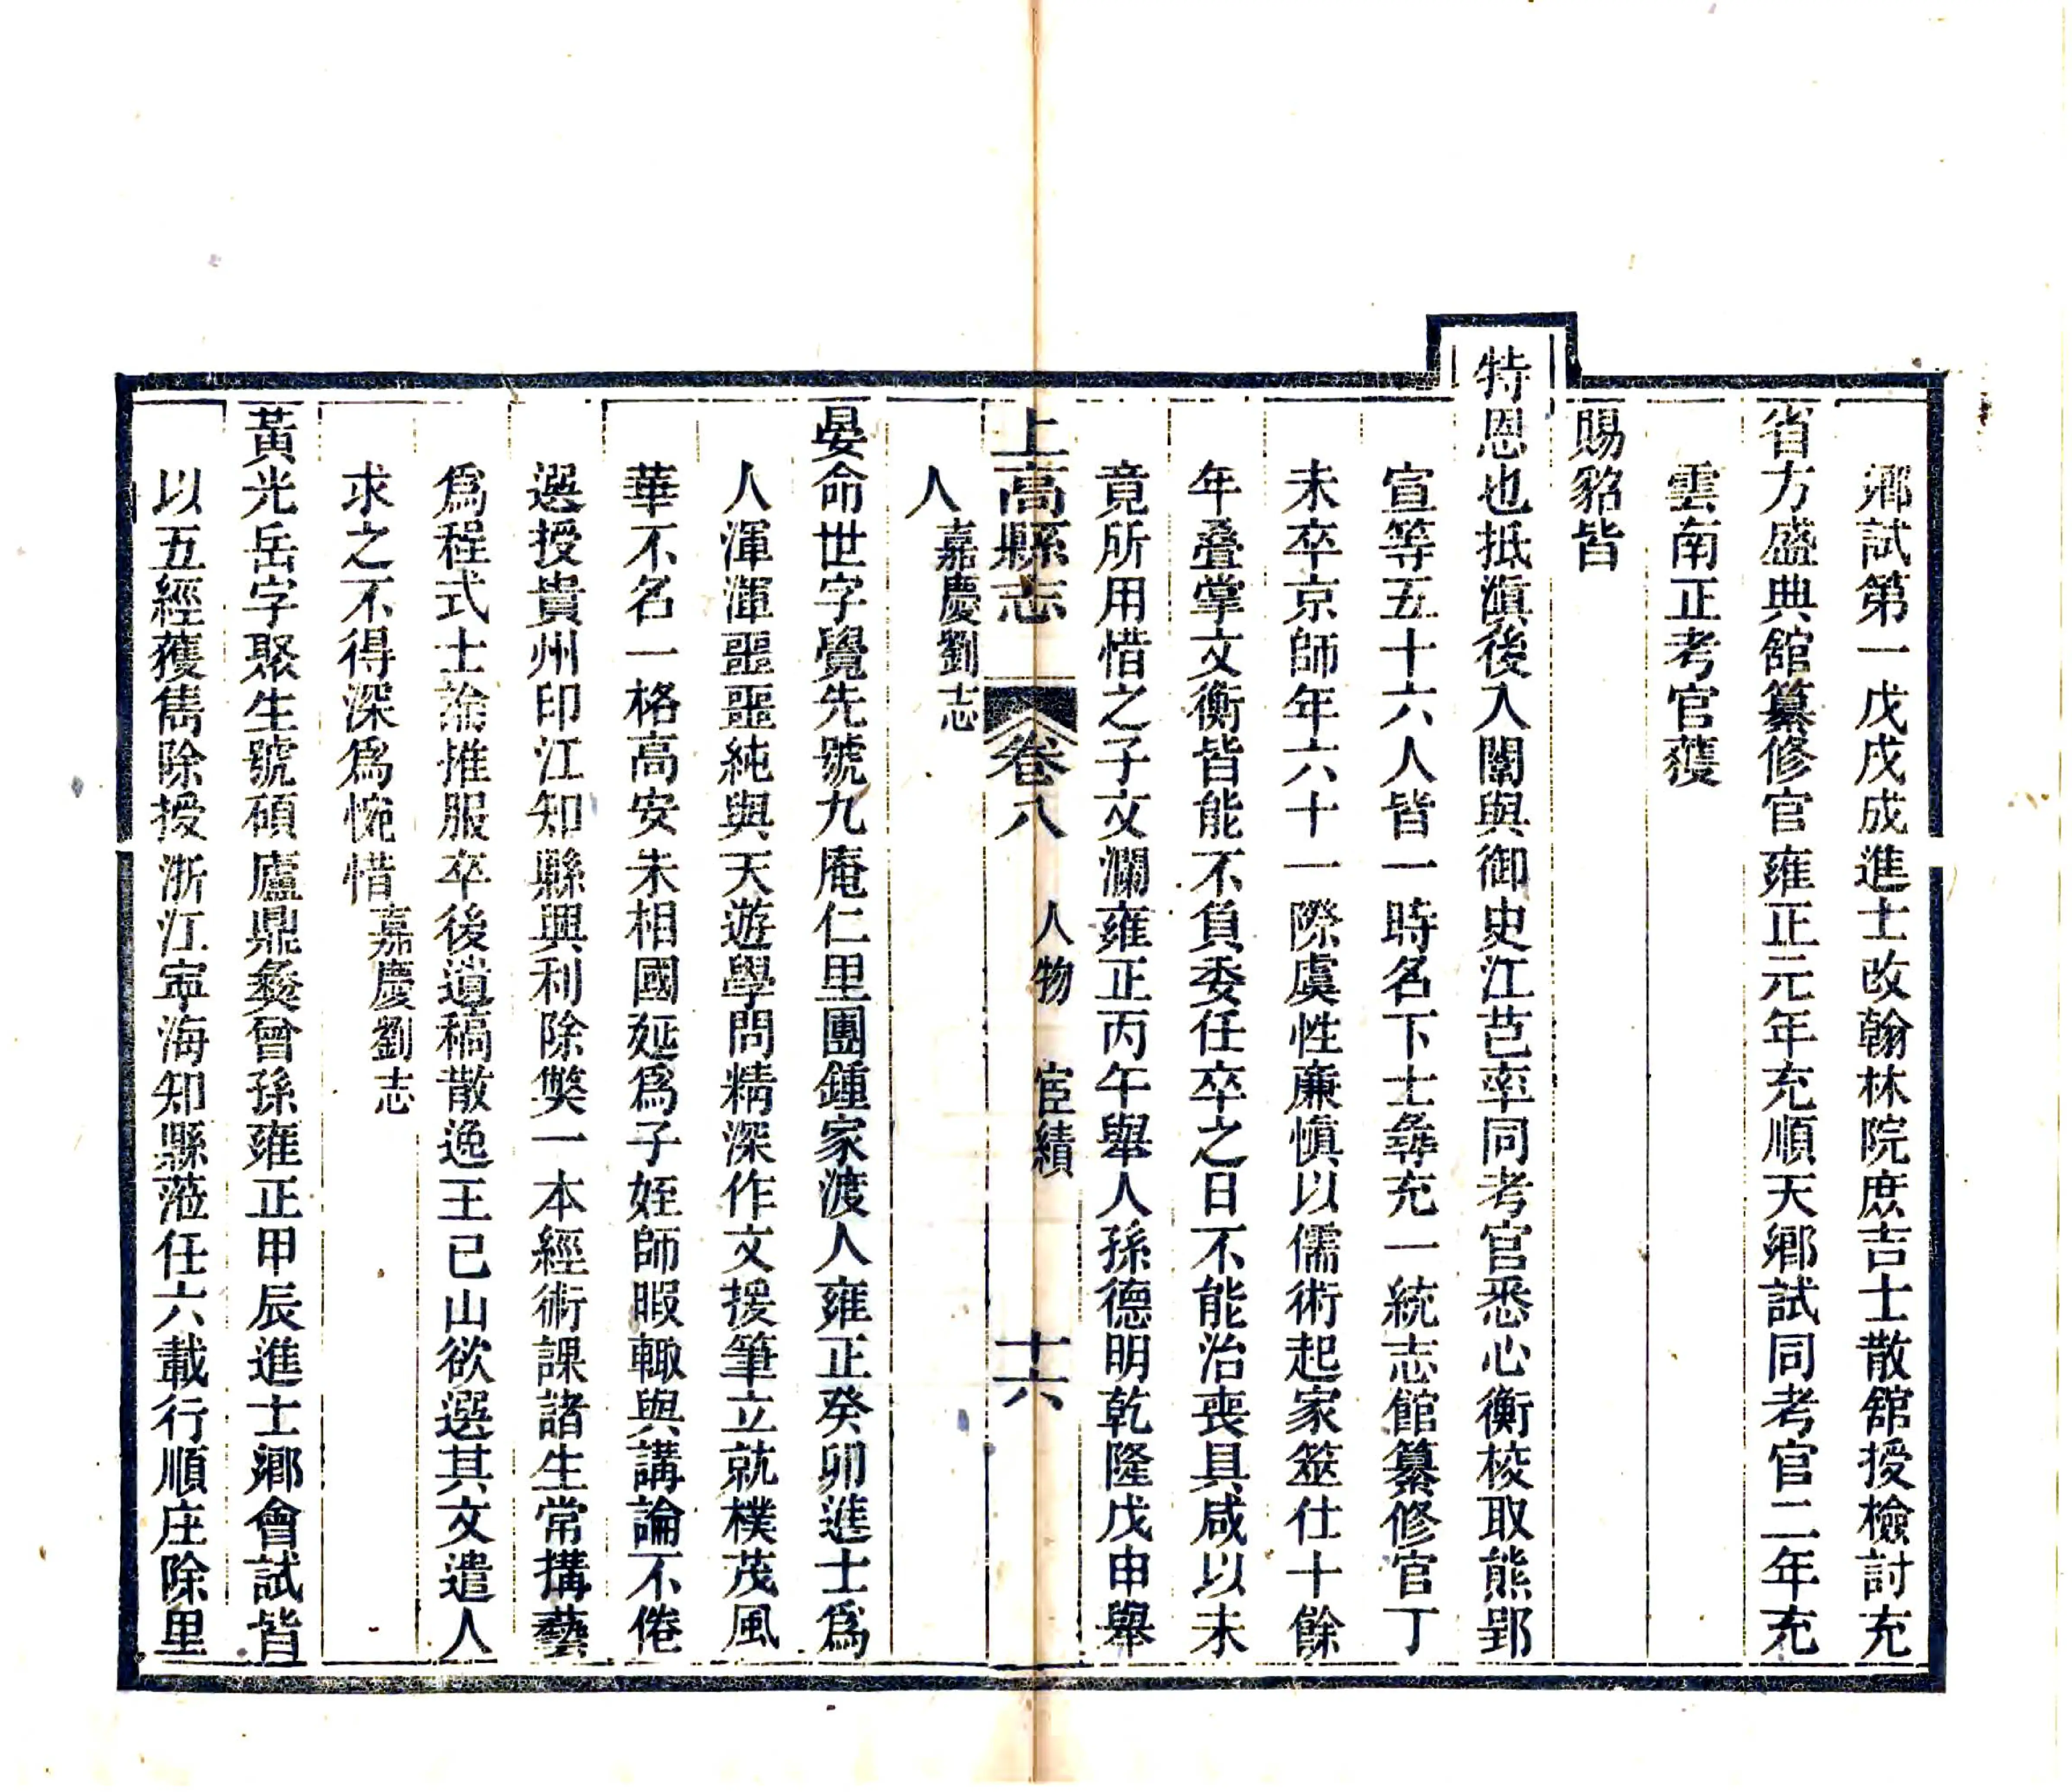 鄉試第一戊戌成進士改翰林院庶吉士散舘授檢討充
省方盛典舘纂修官雍正元年充順天鄉試同考官二年充
雲南正考官蒦
賜貂皆
特恩也抵滇後入闈與御史江芑率同考官悉心衡校取熊郢
宣等五十六人皆一時名下士彝充一統志館纂修官丁
未卒京師年六十一際虞性廉慎以儒術起家筮仕十餘
年疊掌文衡皆能不負委任卒之日不能治喪具咸以未
竟所用惜之子文瀾雍正丙午舉人孫德明乾隆戊申舉
人嘉慶劉志
上高縣志 卷八 人物 宦績 十六
晏命世字覺先號九庵仁里團鍾家渡人雍正癸卯進士爲
人渾渾噩噩純與天遊學問精深作文援筆立就樸茂風
華不名一格高安朱相國延爲子姪師暇輙與講論不倦
選授貴州印江知縣興利除獘一本經術課諸生常搆藝
爲程式士論推服卒後遺稿散逸王已山欲選其文遣人
求之不得深爲惋惜嘉慶劉志
黃光岳字聚生號碩廬鼎彝曾孫雍正甲辰進士鄉會試皆
以五經獲雋除授浙江寧海知縣蒞任六載行順庄除里